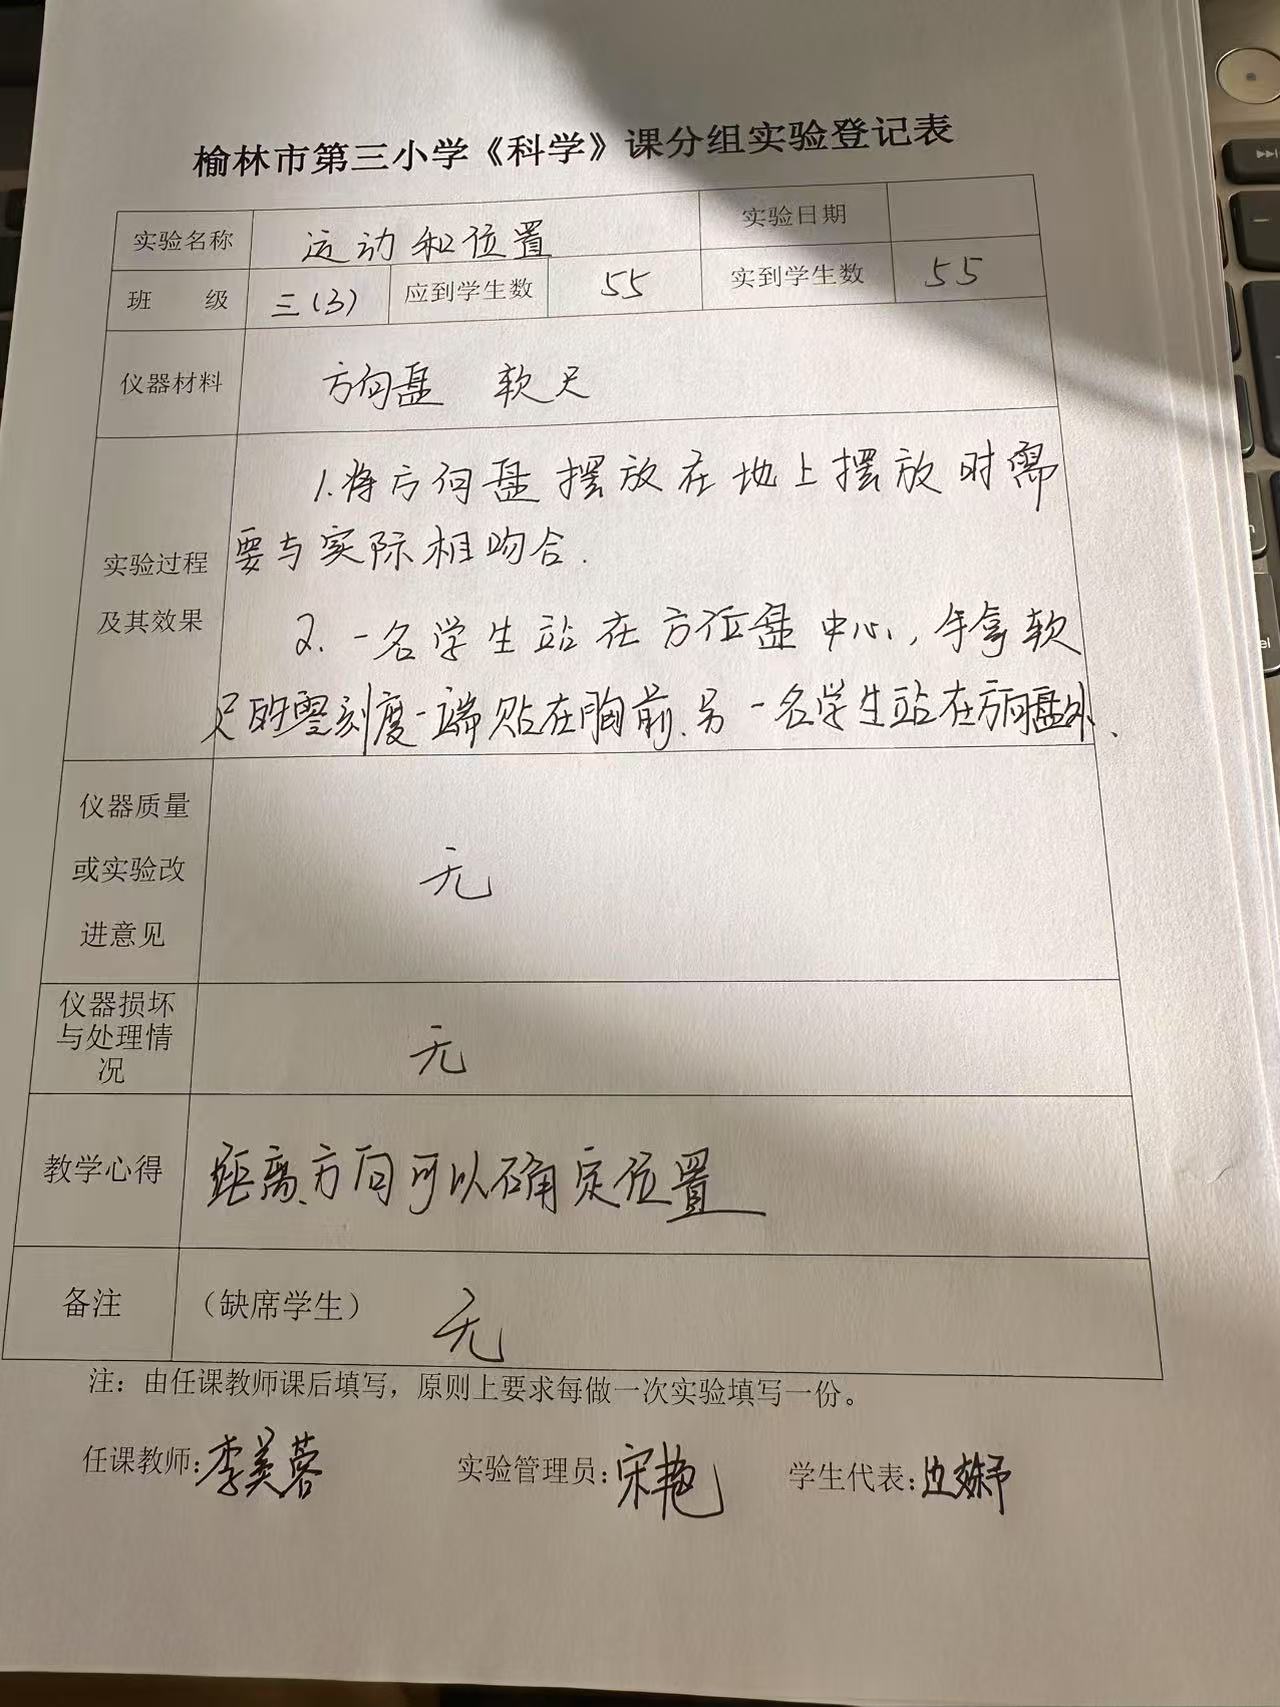 榆林市第三小学《科学》课分组实验登记表
实验名称 运动和位置 实验日期
班 级 三(3) 应到学生数 55 实到学生数 55
仪器材料 方向盘 软尺
1.将方向盘摆放在地上摆放时需
要与实际相吻合.
实验过程
及其效果
2.一名学生站在方位盘中心,手拿软
尺的零刻度一端贴在胸前.另一名学生站在方向盘外、
仪器质量
或实验改
进意见
无
仪器损坏
与处理情
况
无
教学心得 距离、方向可以确定位置
备注 (缺席学生) 无
注：由任课教师课后填写，原则上要求每做一次实验填写一份。
任课教师:李美蓉 实验管理员:宋艳 学生代表:边